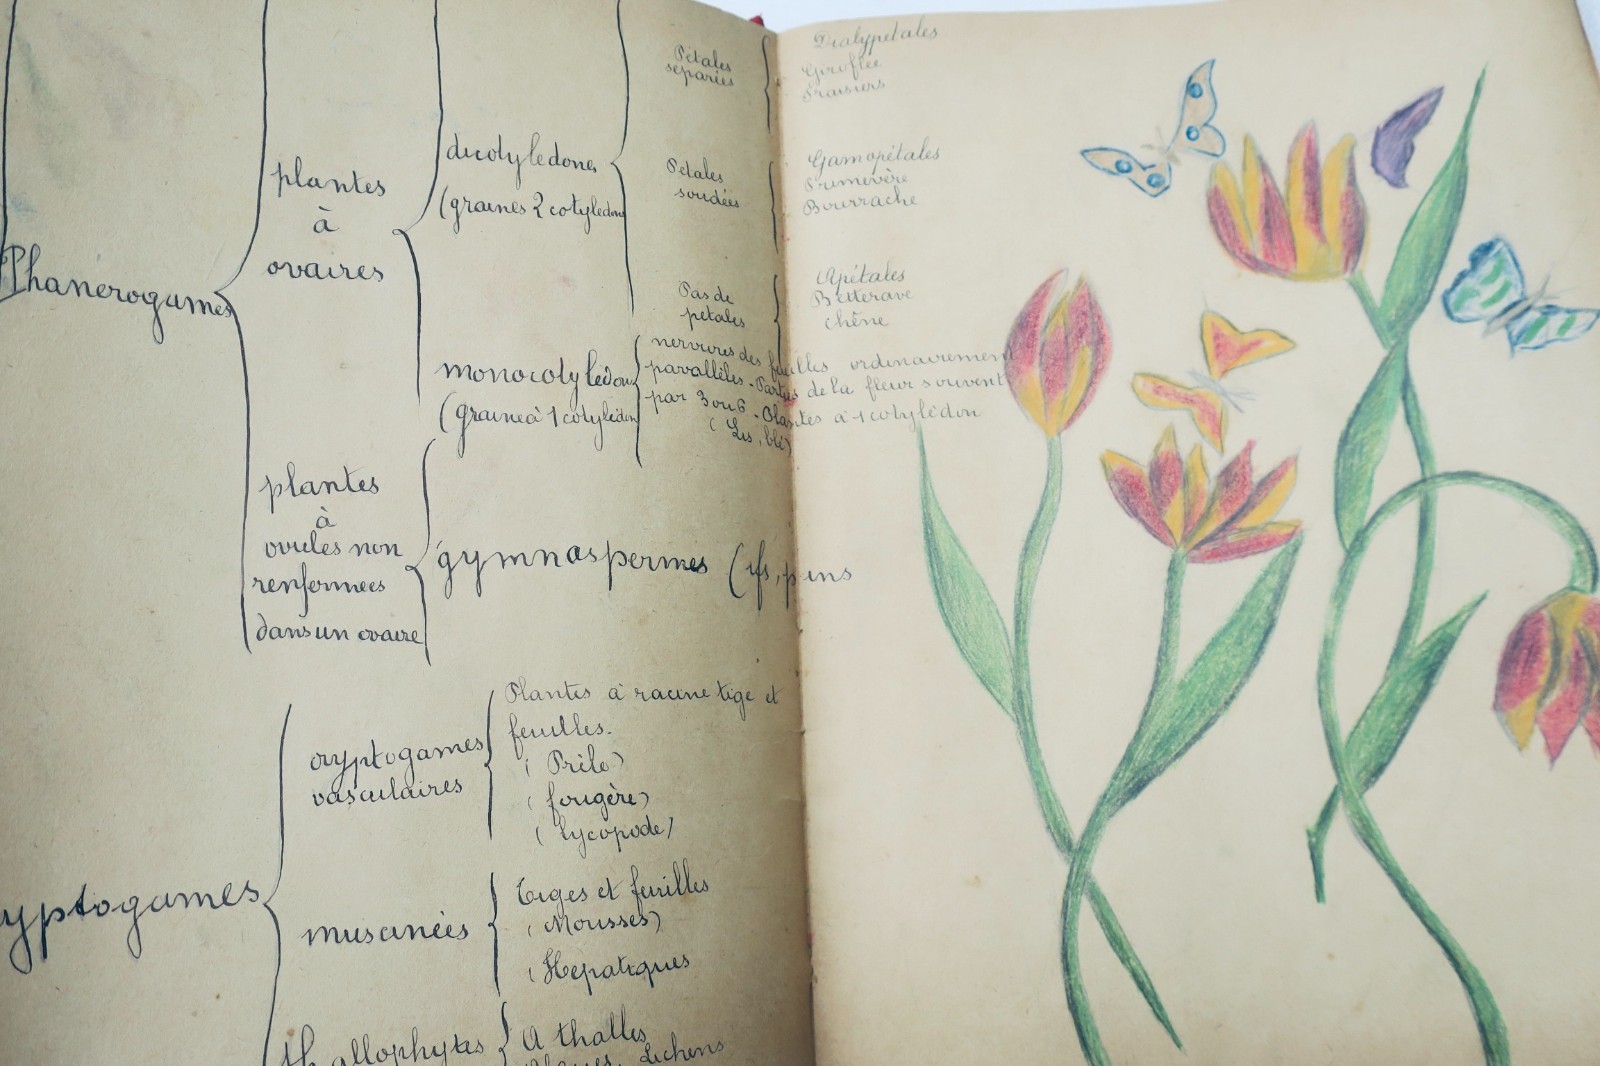 Phanerogames
plantes
à
ovaires
dicotyledones
(graines 2 cotylédon
Pétales
séparées
Dialypetales
Giroflée
Fraisiers
Pétales
soudées
Gamopétales
Primevère
Bourrache
Pas de
petales
Apétales
Betterave
Chêne
monocotylédon
(graine à 1 cotylédon
nervures des feuilles ordinairement
parallèles. Parties de la fleur souvent
par 3 ou 6. Plantes à 1 cotylédon
(Lis, blé)
plantes
à
ovules non
renfermees
dans un ovaire
gymnospermes (ifs, pins
ryptogames
cryptogames
vasculaires
Plantes à racine tige et
feuilles.
(Prêle)
(fougère)
(lycopode)
muscinées
Tiges et feuilles
(Mousses)
(Hépatiques
thallophytes
A thalles
Algues, Lichens